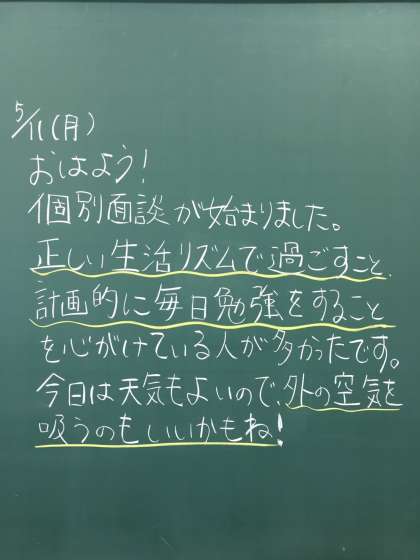 5/11(月)
おはよう!
個別面談が始まりました。
正しい生活リズムで過ごすこと、
計画的に毎日勉強をすること
を心がけている人が多かったです。
今日は天気もよいので、外の空気を
吸うのもいいかもね!